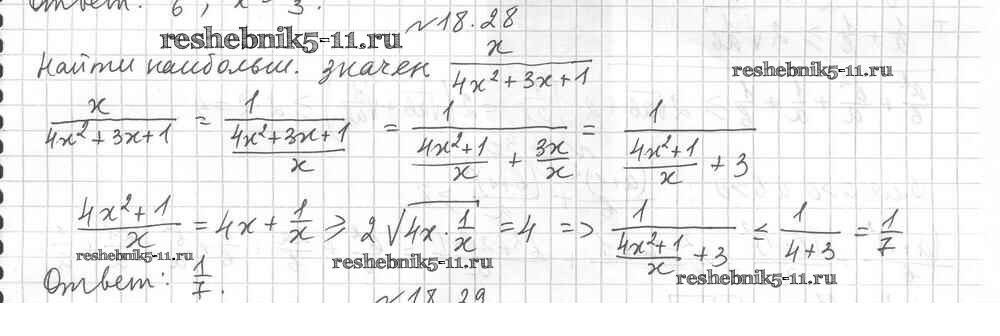 Ответ: 6; x = 3.
№18.28
reshebnik5-11.ru
Найти наибольш. значен x/(4x²+3x+1)
reshebnik5-11.ru
x/(4x²+3x+1) = 1/((4x²+3x+1)/x) = 1/((4x²+1)/x + 3x/x) = 1/((4x²+1)/x + 3)
(4x²+1)/x = 4x + 1/x ⩾ 2√(4x·1/x) = 4 => 1/((4x²+1)/x + 3) ≤ 1/(4+3) = 1/7
reshebnik5-11.ru
reshebnik5-11.ru
reshebnik5-11.ru
Ответ: 1/7.
№18.29